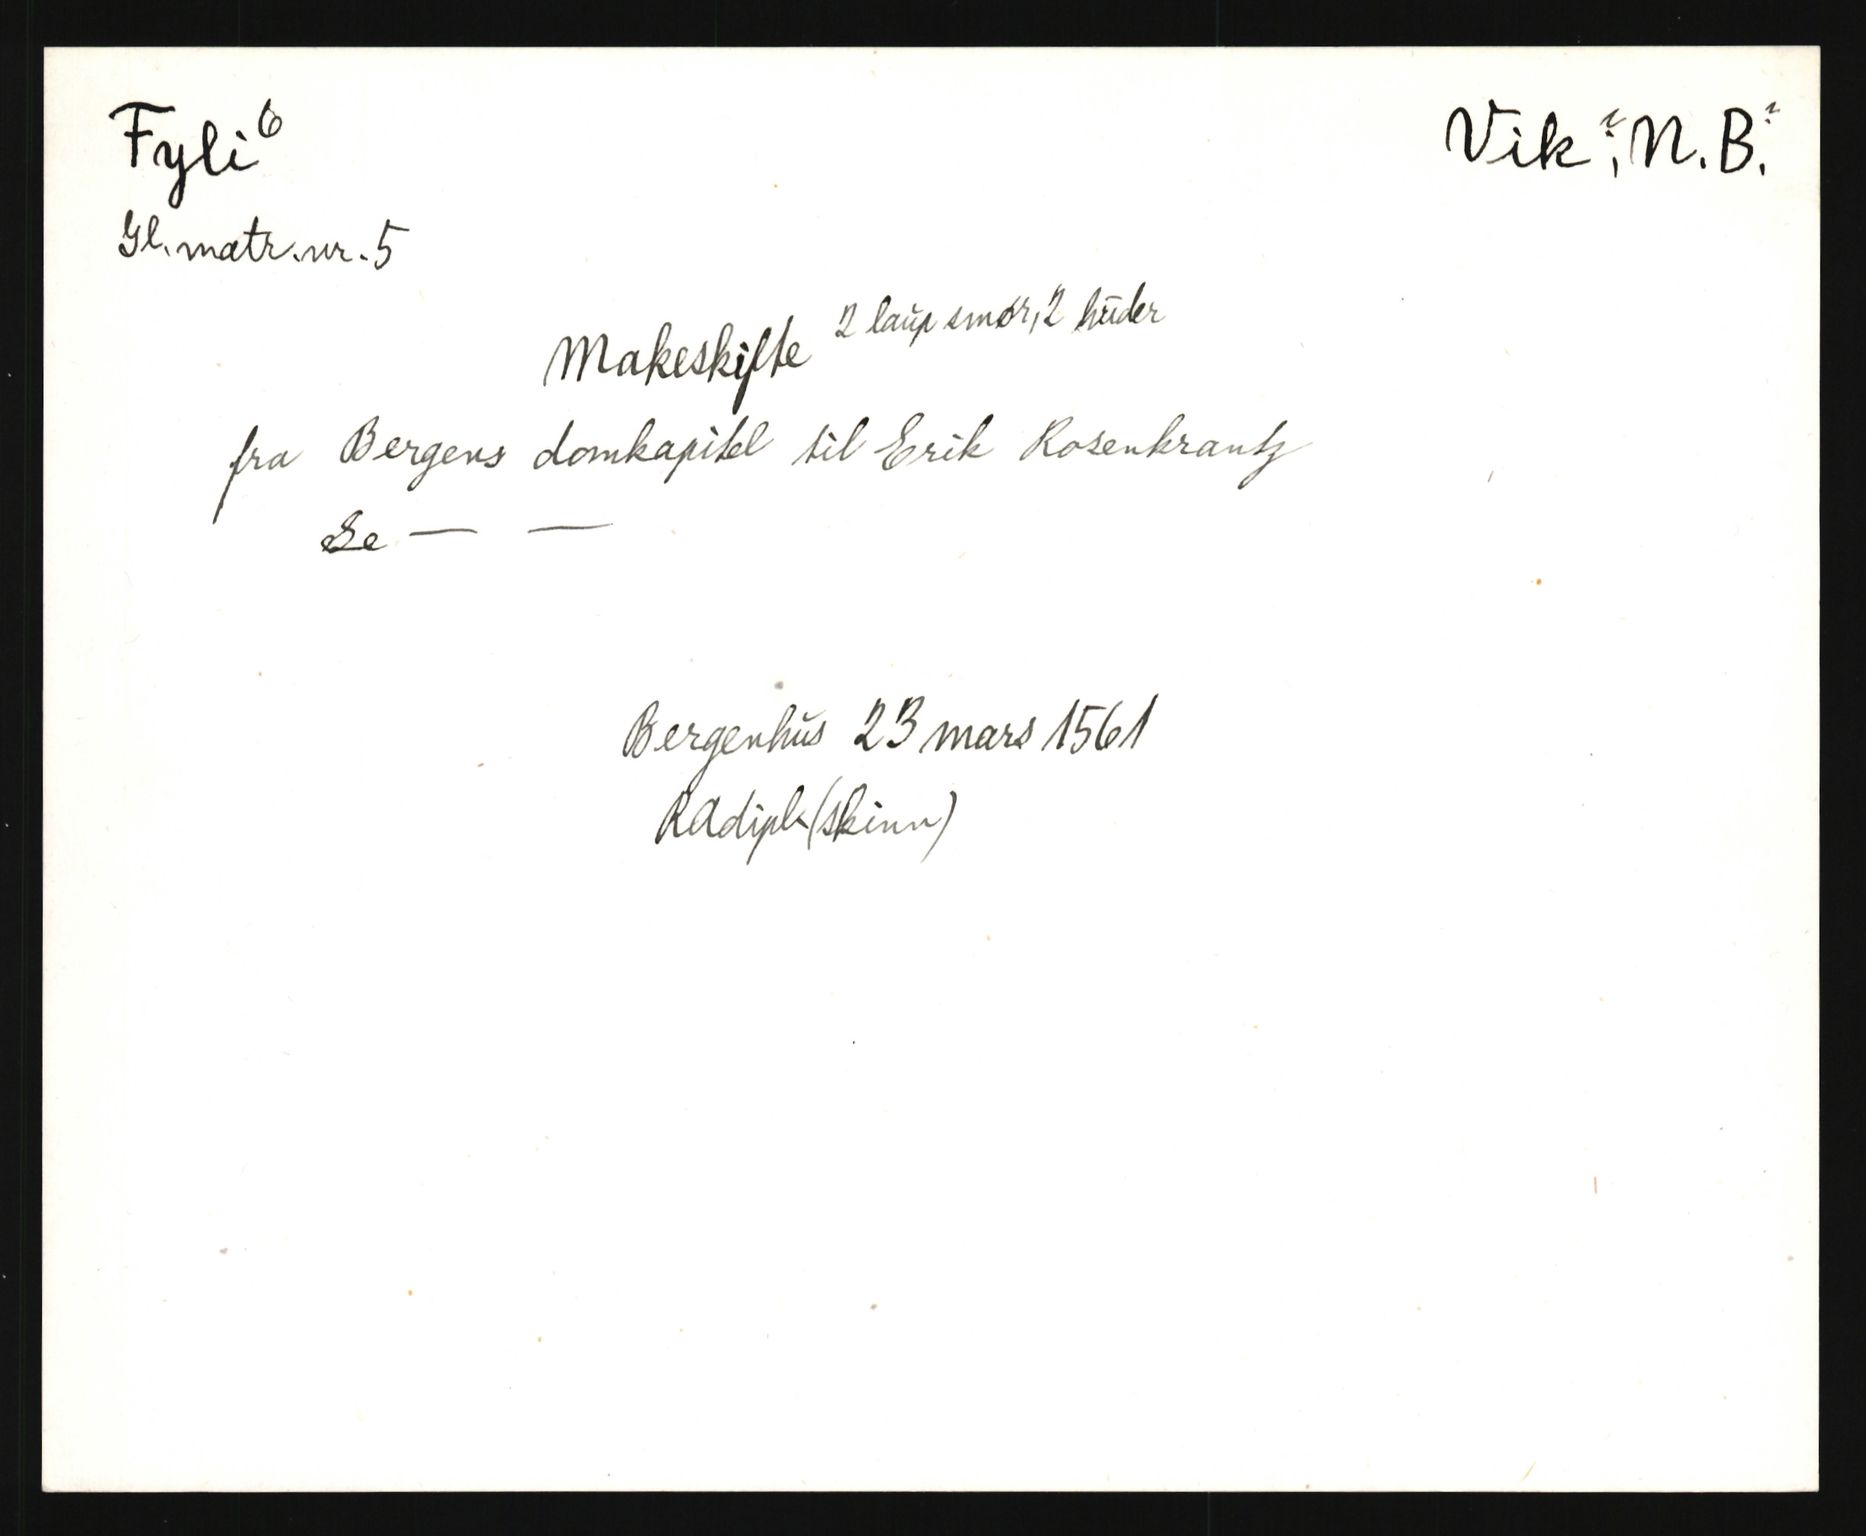 Fyli 6
Vik, N. B.
Gl. matr. nr. 5
Makeskifte 2 laup smør, 2 huder
fra Bergens domkapitel til Erik Rosenkrantz
Se — —
Bergenhus 23 mars 1561
RAdipl. (skinn)